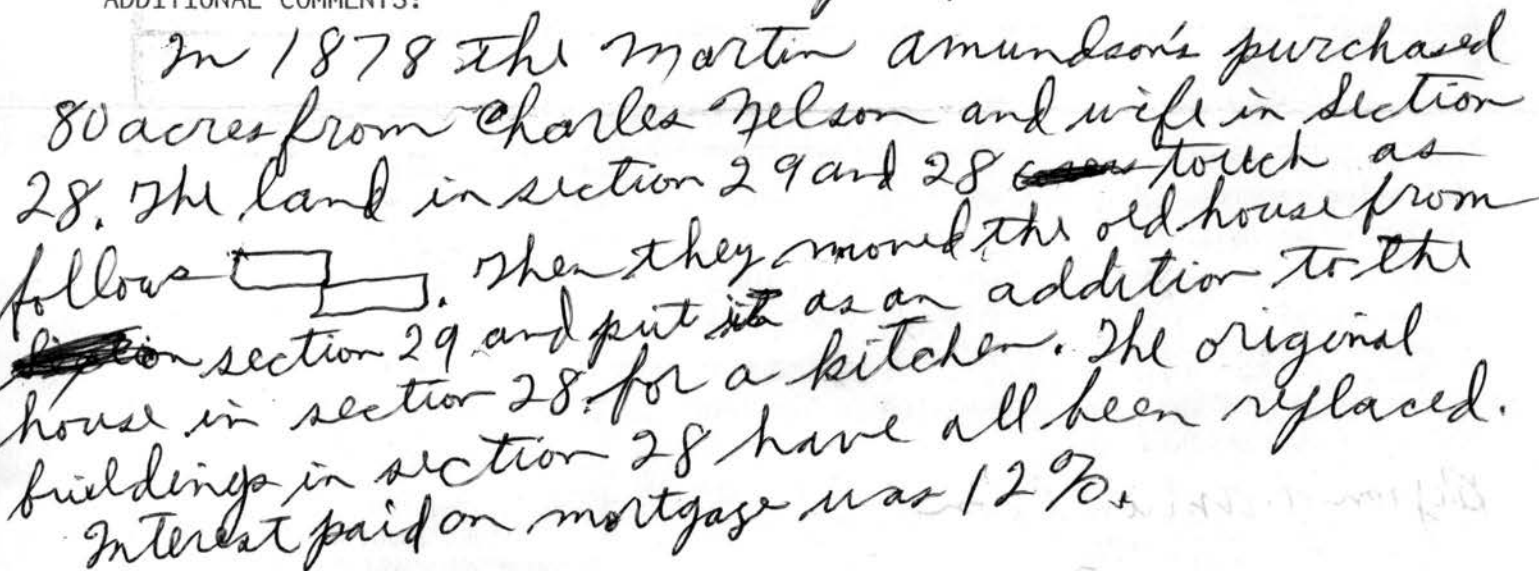 ADDITIONAL COMMENTS:
In 1878 the Martin Amundson's purchased
80 acres from Charles Nelson and wife in Section
28. The land in section 29 and 28 touch as
follows . Then they moved the old house from
section 29 and put it as an addition to the
house in section 28 for a kitchen. The original
buildings in section 28 have all been replaced.
Interest paid on mortgage was 12%.